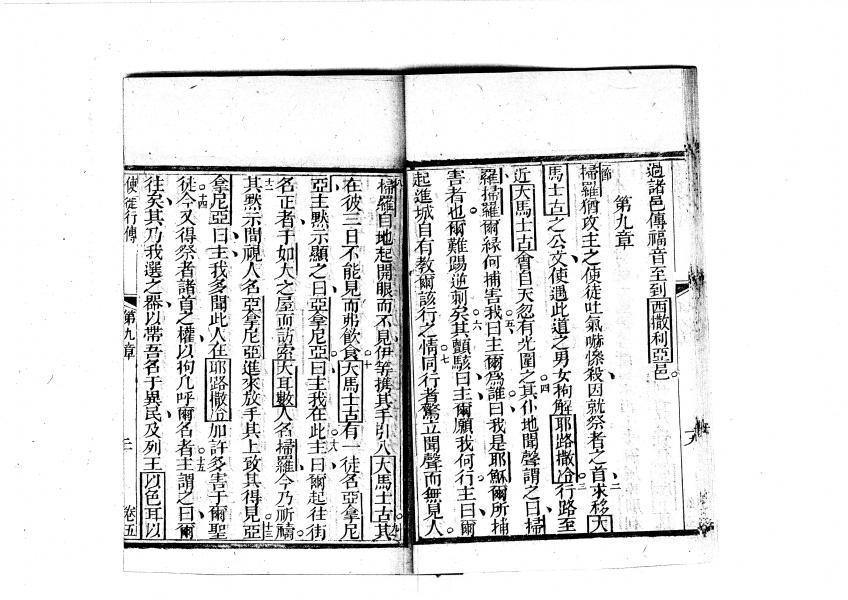 過諸邑傳福音至到西撒利亞邑。
第九章
節掃羅猶攻主之使徒吐氣嚇懆殺因就祭者之首求移大
馬士古之公文使遇此道之男女拘解耶路撒冷行路至
近大馬士古會自天忽有光圍之其仆地聞聲謂之曰掃
羅掃羅爾緣何捕害我曰主爾為誰曰我是耶穌爾所捕
害者也爾難踢逆刺矣其顫駭曰主爾願我何行主曰爾
起進城自有教爾該行之情同行者驚立聞聲而無見人
掃羅自地起開眼而不見伊等攜其手引入大馬士古其
在彼三日不能見而弗飲食大馬士古有一徒名亞拿尼
亞主默示顯之曰亞拿尼亞曰主我在此主曰爾起往街
名正者于如大之屋而訪索大耳數人名掃羅今乃祈禱
其默示間視人名亞拿尼亞進來放手其上致其得見亞
拿尼亞曰主我多聞此人在耶路撒冷加許多害于爾聖
徒今又得祭者諸首之權以拘凡呼爾名者主謂之曰爾
往矣其乃我選之器以帶吾名于異民及列王以色耳以
使徒行傳 第九章 卷五